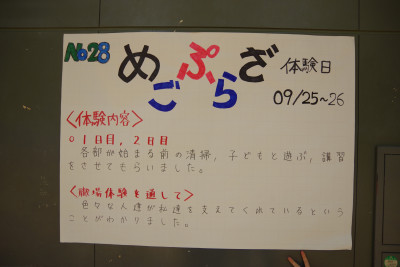 No28
めごぷらざ
体験日
09/25~26
<体験内容>
○1日目,2日目
各部が始まる前の清掃,子どもと遊ぶ,講習
をさせてもらいました。
<職場体験を通して>
色々な人達が私達を支えてくれているという
ことがわかりました。